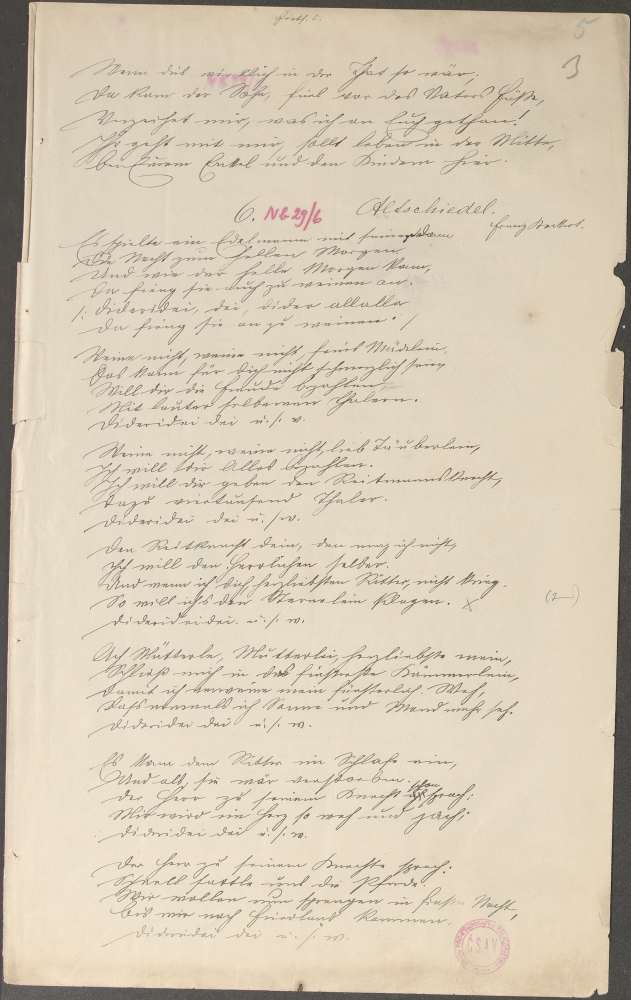 Forts. 6.
5
3
Wenn dies wirklich in der That so wär,
Da kam der Sohn, fiel vor des Vaters Füße,
Verzeihet mir, was ich an Euch gethan!
Ihr geht mit mir, sollt leben in der Mitte,
Bei Eurem Enkel und den Kindern hier.
6. N6 29/6 Altschiedel.
Franz
Es spielte ein Edelmann mit seiner Dam
Die Nacht zum hellen Morgen
Und wie der helle Morgen kam,
Da fieng sie auch zu weinen an.
/: Dideridei, dei, dider allalla
Da fieng sie an zu weinen :/
Weine nicht, weine nicht, feins Mädelein,
Das kann für dich nicht schmerzlich sein,
Will dir die Freude bezahlen
Mit lauter silbernen Thalern.
Dideridei dei u. s. w.
Weine nicht, weine nicht, lieb Täuberlein,
Ich will dir Alles bezahlen.
Ich will dir geben den Reitmannsknecht,
Dazu viertausend Thaler.
Dideridei dei u. s. w.
Den Reitknecht dein, den mag ich nicht,
Ich will den Herrlichen selber.
Und wenn ich dich herzliebsten Ritter, nicht krieg.
So will ichs den Sternelein klagen. X
(2–)
Dideridei dei u. s. w.
Ach Mütterle, Mutterlei, herzliebste mein,
Schließ mich in das finsterste Kämmerlein,
Damit ich verweine mein Weh,
Dass niemals ich Sonne und Mond mehr seh.
Dideridei dei u. s. w.
Es kam dem Ritter im Schlafe ein,
Und als sie wär verstorben.
Der Herr zu seinem Knecht schon sprach:
Mir wird im Herz so weh und zach:
Dideridei dei u. s. w.
Der Herr zu seinem Knechte sprach:
Schnell sattle uns die Pferde.
Wir wollen nun sprengen in Nacht,
Bis wir nach Friedland kommen.
Dideridei dei u. s. w.
ČSAV